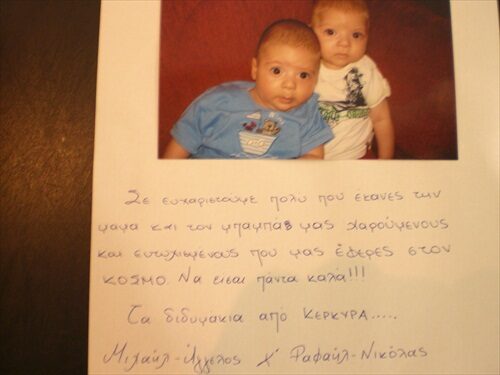 Σε ευχαριστουμε πολυ που εκανες την
μαμα και τον μπαμπά μας χαρούμενους
και ευτυχισμένους που μας έφερες στον
ΚΟΣΜΟ. Να εισαι πάντα καλά!!!
Τα διδυμάκια από ΚΕΡΚΥΡΑ.....
Μιχαήλ-Άγγελος χ' Ραφαήλ-Νικόλας